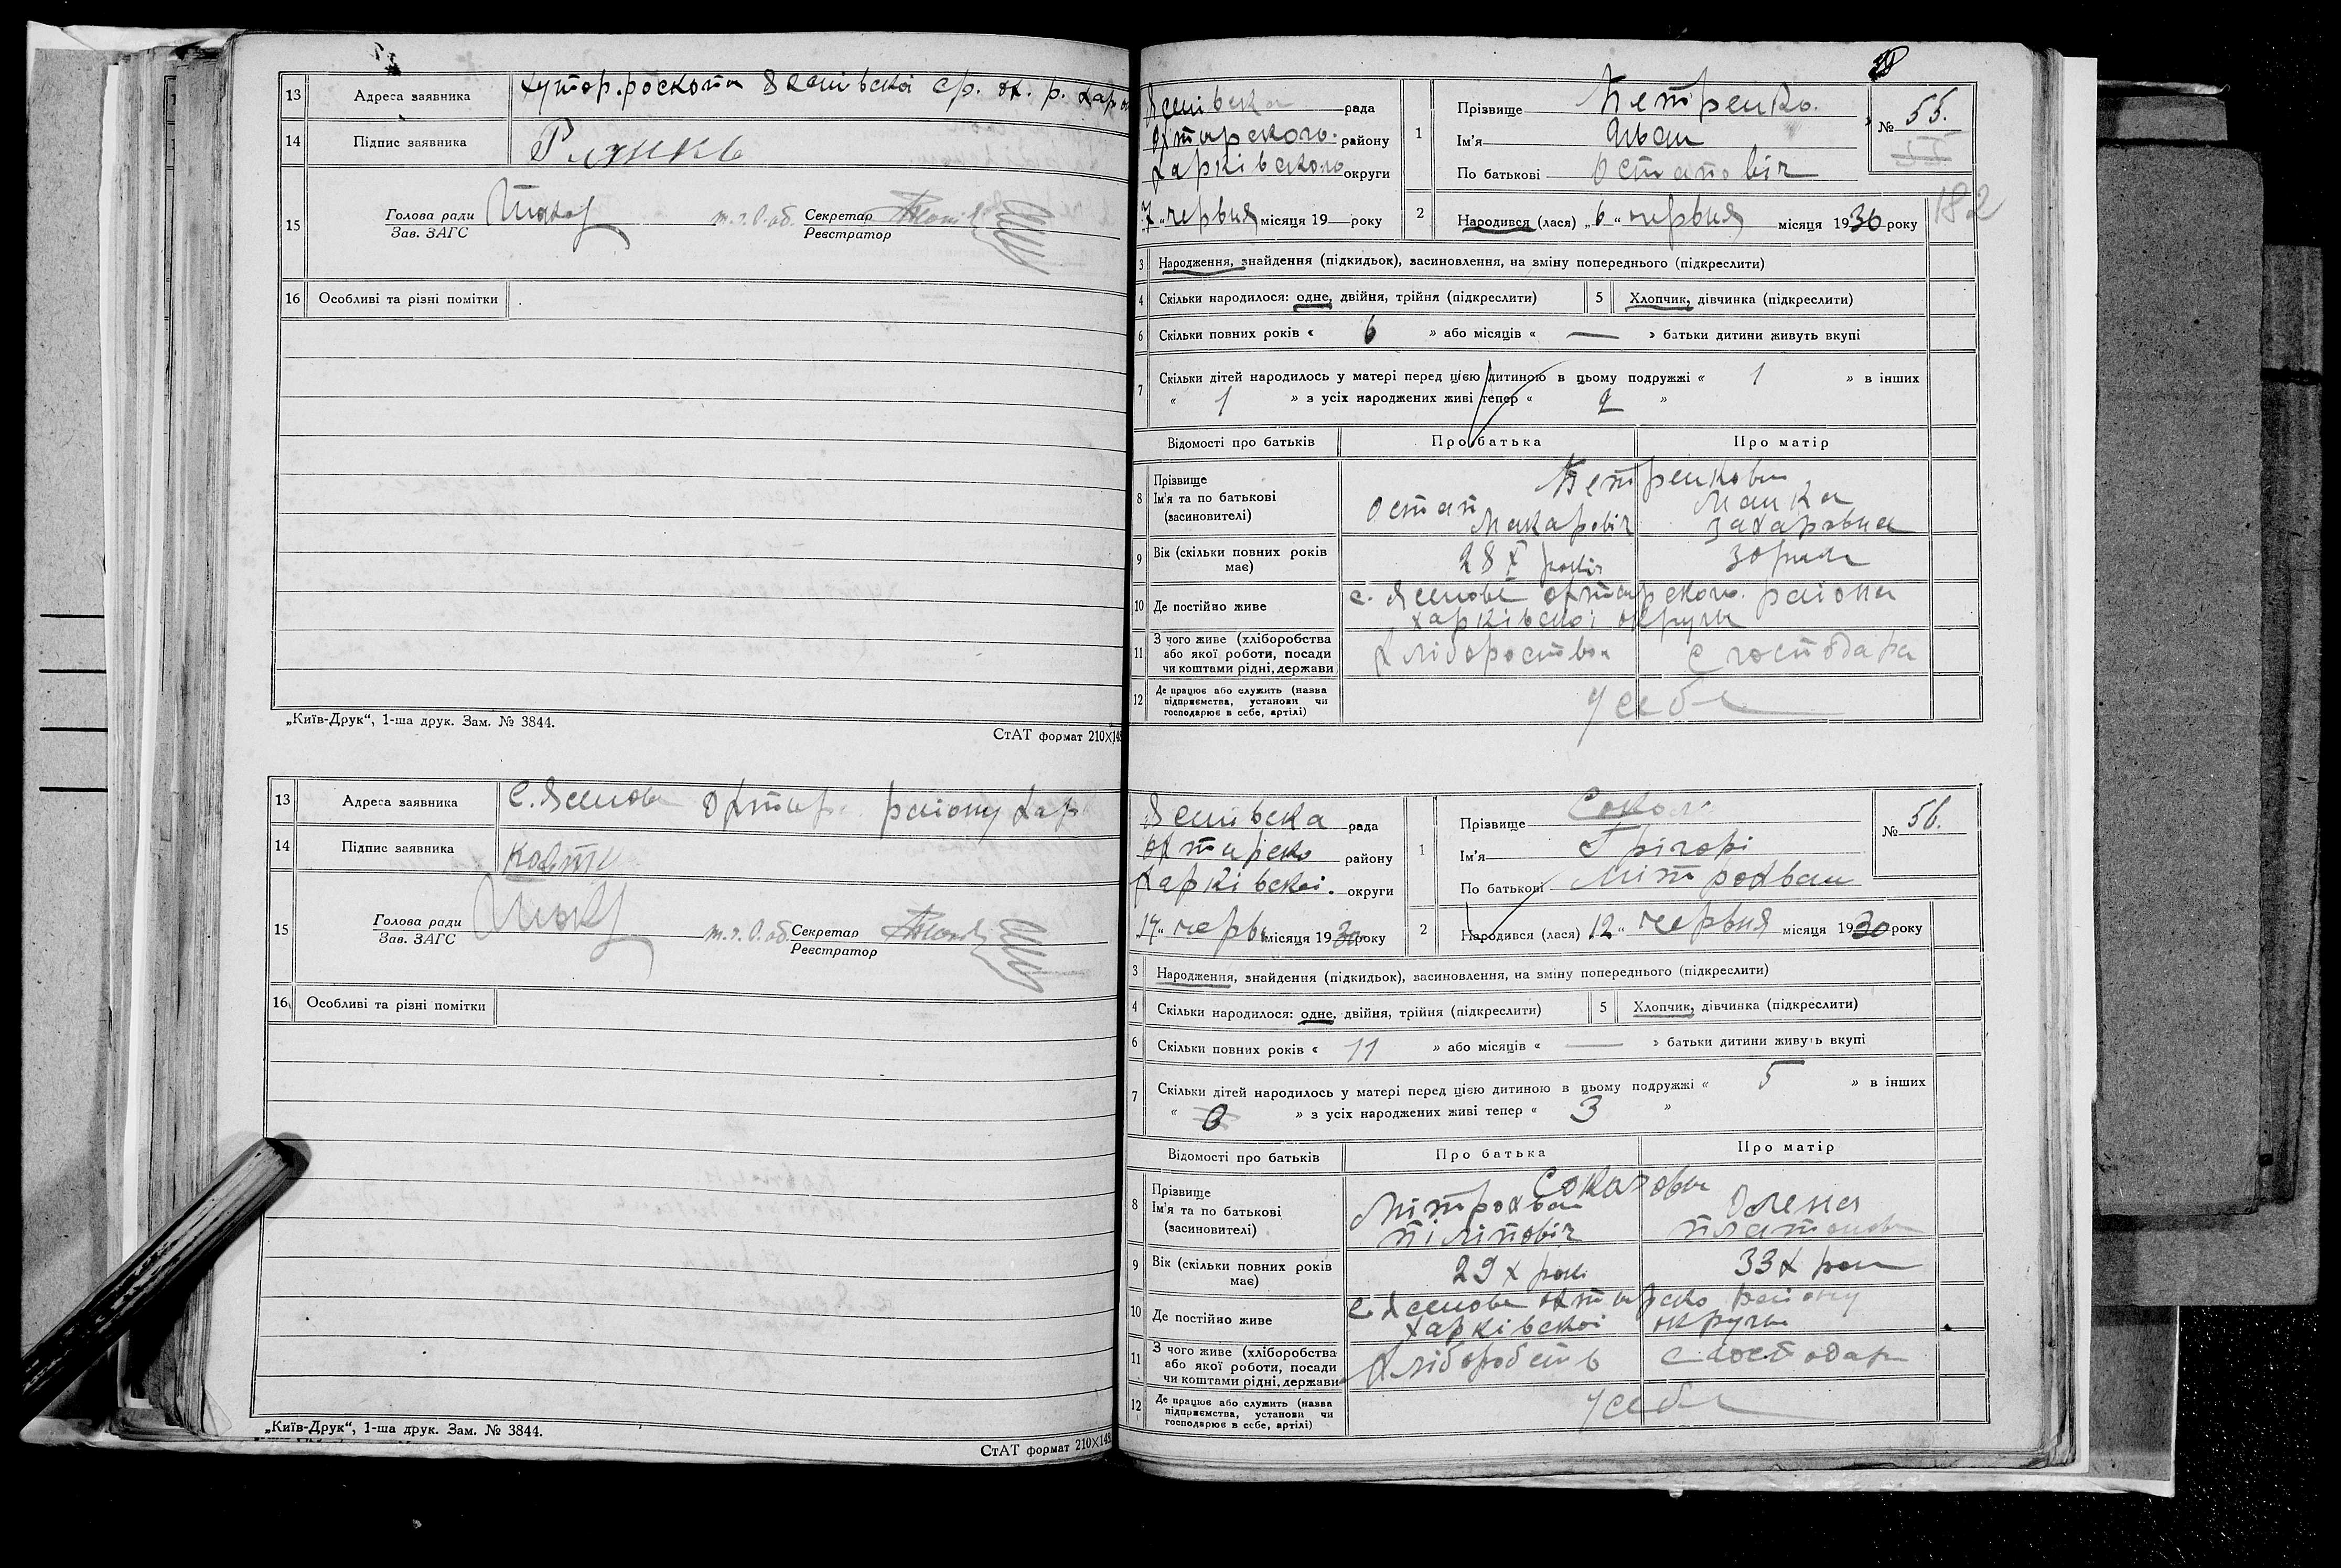 13 Адреса заявника хутор. роскопи Ясенівскої ср. ох. р.
14 Підпис заявника
15 Голова ради
Зав. ЗАГС
Секретар
Реєстратор
16 Особливі та різні помітки
„Київ-Друк“, 1-ша друк. Зам. № 3844.
СтАТ формат 210X148
13 Адреса заявника с. Ясенове Охтир. раіону Хар
14 Підпис заявника
15 Голова ради
Зав. ЗАГС
Секретар
Реєстратор
16 Особливі та різні помітки
„Київ-Друк“, 1-ша друк. Зам. № 3844.
СтАТ формат 210X148
рада
району
Харківского округи
7 „ червня місяця 19 — року
1 Прізвище Петренко.
Ім'я Іван
По батькові Остаповіч
№ 55.
182
2 Народився (лася) „ 6 “ червня місяця 1930 року
3 Народження, знайдення (підкидьок), засиновлення, на зміну попереднього (підкреслити)
4 Скільки народилося: одне, двійня, трійня (підкреслити) 5 Хлопчик, дівчинка (підкреслити)
6 Скільки повних років « 6 » або місяців « — » батьки дитини живуть вкупі
7 Скільки дітей народилось у матері перед цією дитиною в цьому подружжі « 1 » в інших
« 1 » з усіх народжених живі тепер « 2 »
Відомості про батьків Про батька Про матір
8 Прізвище
Ім'я та по батькові
(засиновителі)
Петренкови
Остап Макаровіч
Захаровна
9 Вік (скільки повних років має) 28 років 30 рик
10 Де постійно живе с. Ясенове охтирского раіона
харківскоі округи
11 З чого живе (хліборобства або якої роботи, посади чи коштами рідні, держави
Хлібороство
є господара
12 Де працює або служить (назва підприємства, установи чи господарює в себе, артілі)
У себе
Ясенівска рада
охтирско району
Харківскоі. округи
17 “ червн місяця 1930 року
1 Прізвище Сокол
Ім'я Грігорі
По батькові Мітрохван
№ 56.
2 Народився (лася) 12 “ червня місяця 1930 року
3 Народження, знайдення (підкидьок), засиновлення, на зміну попереднього (підкреслити)
4 Скільки народилося: одне, двійня, трійня (підкреслити) 5 Хлопчик, дівчинка (підкреслити)
6 Скільки повних років « 11 » або місяців « — » батьки дитини живуть вкупі
7 Скільки дітей народилось у матері перед цією дитиною в цьому подружжі « 5 » в інших
« 0 » з усіх народжених живі тепер « 3 »
Відомості про батьків Про батька Про матір
8 Прізвище
Ім'я та по батькові
(засиновителі)
Соколови
Мітрохван Піліповіч
Олена Платонов
9 Вік (скільки повних років має) 29 х рок 33 х рок
10 Де постійно живе с. Ясенове охтирско раіону
харківскоі округи
11 З чого живе (хліборобства або якої роботи, посади чи коштами рідні, держави
Хліборобств
є господар
12 Де працює або служить (назва підприємства, установи чи господарює в себе, артілі)
У себе